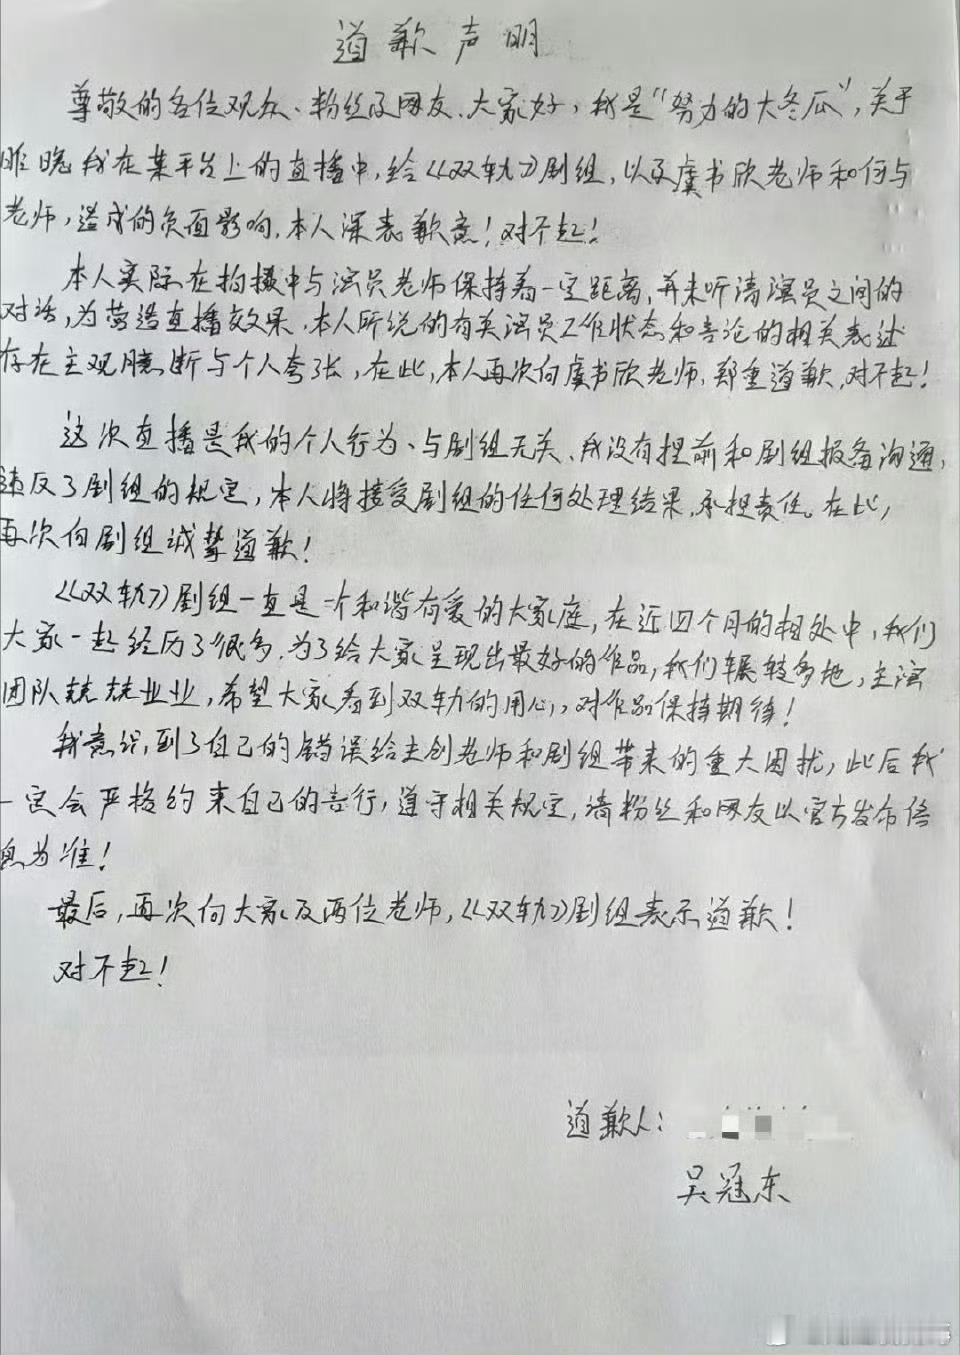 道歉声明
尊敬的各位观众、粉丝及网友、大家好，我是“努力的大冬瓜”，关于
昨晚我在某平台上的直播中，给《双轨》剧组，以及虞书欣老师和何与
老师，造成的负面影响，本人深表歉意！对不起！
本人实际在拍摄中与演员老师保持着一定距离，并未听清演员之间的
对话，为营造直播效果，本人所说的有关演员工作状态和言论的相关表述
存在主观臆断与个人夸张，在此，本人再次向虞书欣老师，郑重道歉，对不起！
这次直播是我的个人行为、与剧组无关、我没有提前和剧组报备沟通，
违反了剧组的规定，本人将接受剧组的任何处理结果，承担责任。在此，
再次向剧组诚挚道歉！
《双轨》剧组一直是一个和谐有爱的大家庭，在近四个月的相处中，我们
大家一起经历了很多，为了给大家呈现出最好的作品，我们辗转多地，主演
团队兢兢业业，希望大家看到双轨的用心，对作品保持期待！
我意识到了自己的错误给主创老师和剧组带来的重大困扰，此后我
一定会严格约束自己的言行，遵守相关规定，请粉丝和网友以官方发布信
息为准！
最后，再次向大家及两位老师，《双轨》剧组表示道歉！
对不起！
道歉人：
吴冠东